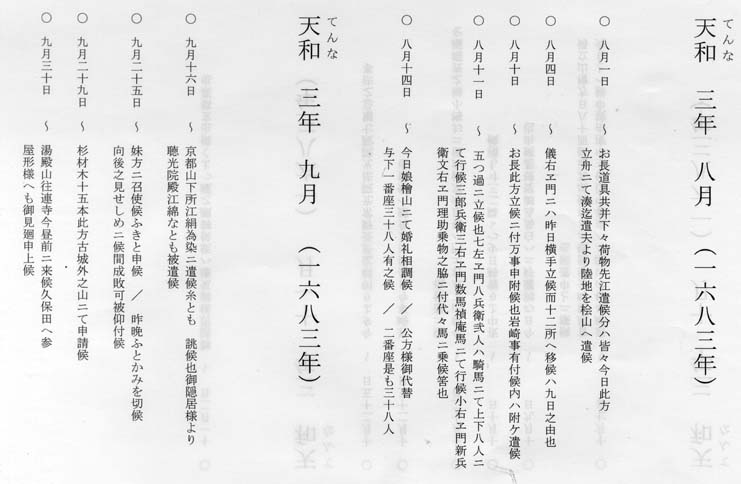 てんな
天和 三年 八月 (一六八三年)
○ 八月一日 ～ お長道具共并下々荷物先江遣候分ハ皆々今日此方
立舟ニて湊迄遣夫より陸地を桧山へ遣候
○ 八月四日 ～ 儀右ヱ門ニハ昨日横手立候而十二所へ移候ハ九日之由也
○ 八月十日 ～ お長此方立候ニ付万事申附候也岩崎事有付候内ハ附ケ遣候
○ 八月十一日 ～ 五つ過ニ立候也七左ヱ門八兵衛弐人ハ騎馬ニて上下八人ニ
て行候三郎兵衛三右ヱ門数馬禎庵馬ニて行候小右ヱ門新兵
衛文右ヱ門理助乗物之脇ニ付代々馬ニ乗候筈也
○ 八月十四日 ～ 今日娘檜山ニて婚礼相調候 ／ 公方様御代替
与下一番座三十八人有之候 ／ 二番座是も三十八人
てんな
天和 三年 九月 (一六八三年)
○ 九月十六日 ～ 京都山下所江絹為染ニ遣候糸とも 誂候也御隠居様より
聴光院殿江綿なとも被遣候
○ 九月二十五日 ～ 妹方ニ召使候ふきと申候 ／ 昨晩ふとかみを切候
向後之見せしめニ候間成敗可被仰付候
○ 九月二十九日 ～ 杉材木十五本此方古城外之山ニて申請候
○ 九月三十日 ～ 湯殿山往連寺今昼前ニ来候久保田へ参
屋形様へも御見廻申上候